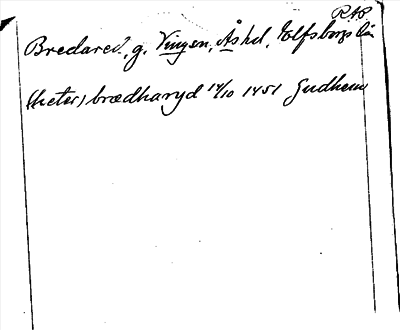 RAP
Bredared?, g. Vingen, Åshd, Elfsborgs län
(heter) brædharyd 14/10 1451 Gudhem